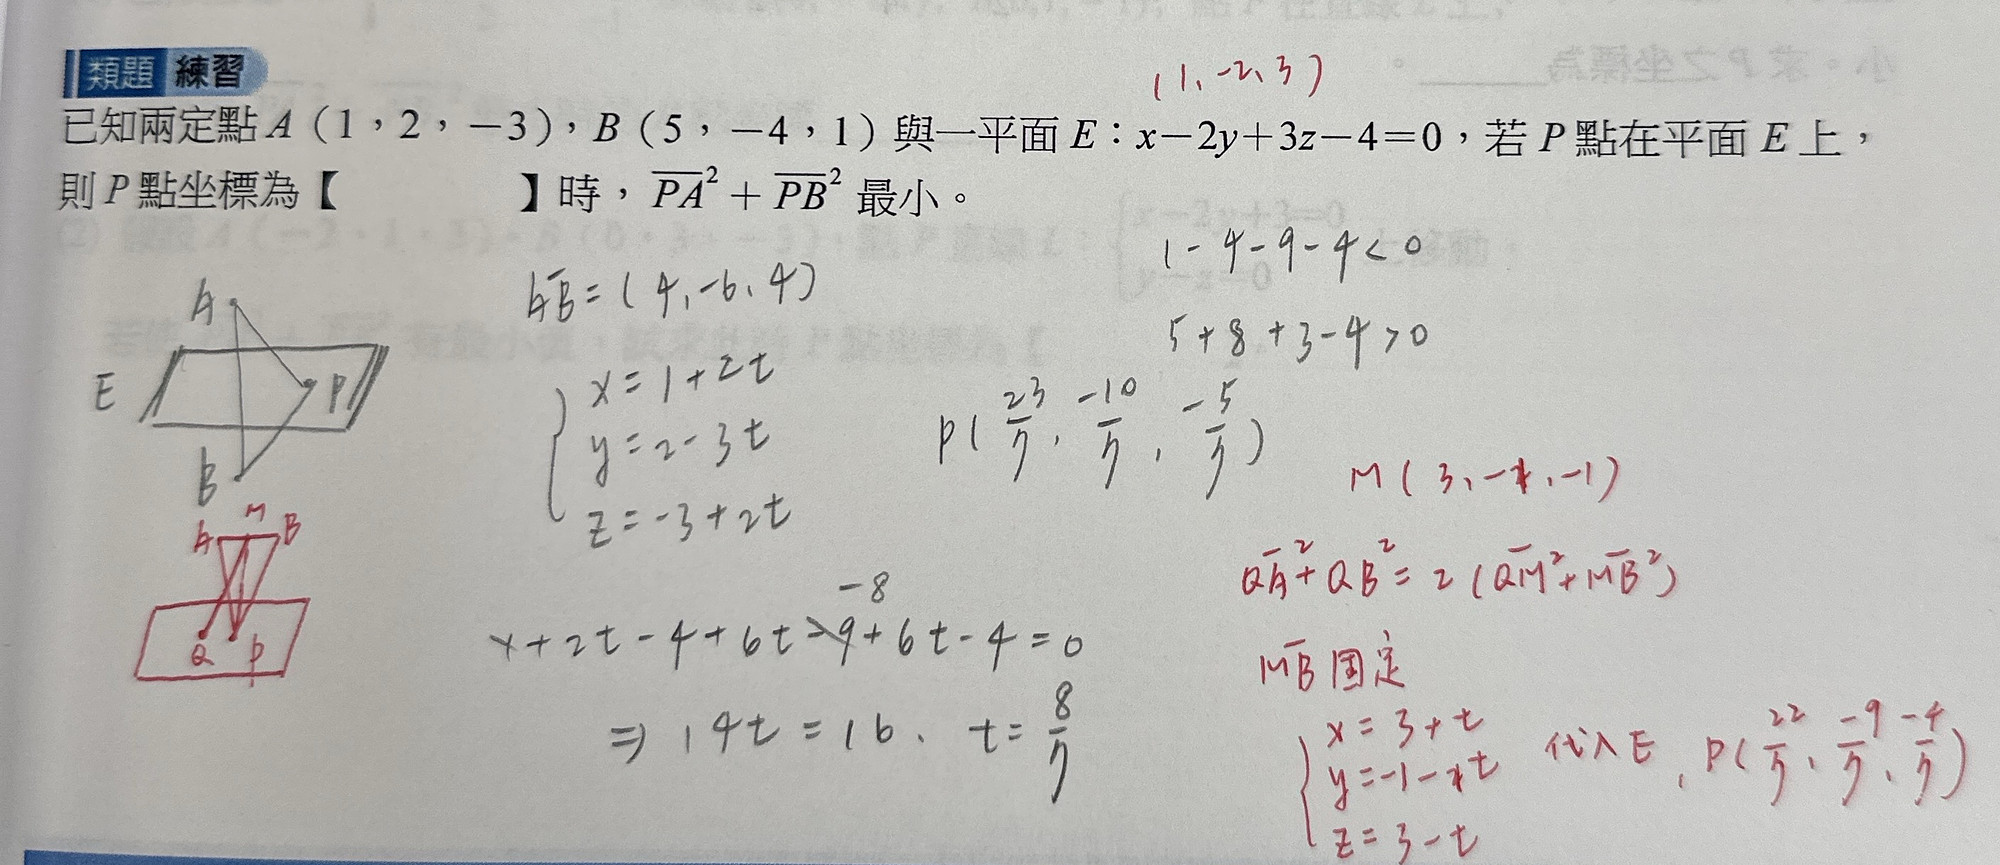 類題 練習
(1,-2,3)
已知兩定點 A(1,2,-3),B(5,-4,1)與一平面 E:x-2y+3z-4=0,若 P 點在平面 E 上,
則 P 點坐標為【 】時,PA²+PB² 最小。
1-4-9-4<0
AB=(4,-6,4)
5+8+3-4>0
A
E
P
B
x=1+2t
y=2-3t
z=-3+2t
P(23/7, -10/7, -5/7)
M(3,-1,-1)
A M B
Q P
QA²+QB²=2(QM²+MB²)
-8
+2t-4+6t-9+6t-4=0
MB固定
⇒14t=16、t=8/7
x=3+t
代入E, P(22/7, -9/7, -4/7)
z=3-t